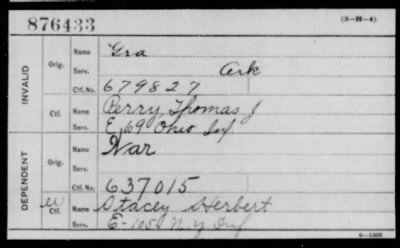 876433 (3-H-4)
INVALID
Orig. Name Gra
Serv. Ark
Ctf. No. 679827
Ctf. Name Perry Thomas J
Serv. E, 69 Ohio Inf
DEPENDENT
Orig. Name War
Serv.
Ctf. No. 637015
W Ctf. Name Stacey Herbert
Serv. E-105 N Y Inf
6-1903